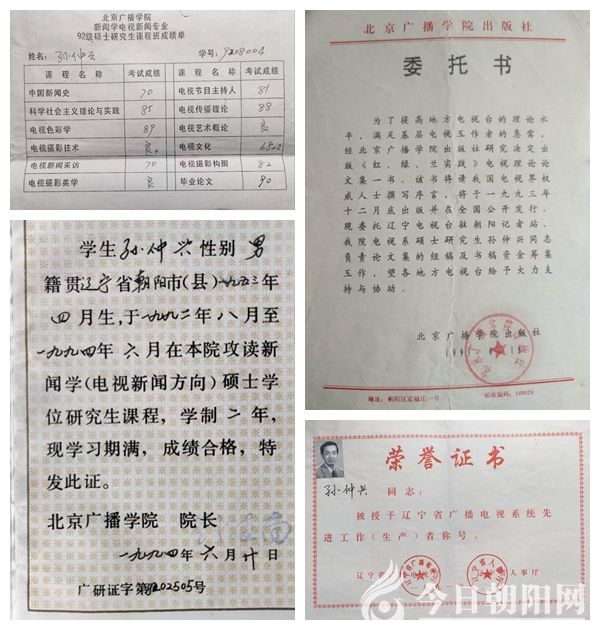 北京广播学院
新闻学电视新闻专业
92级硕士研究生课程班成绩单
姓名：孙仲兴 学号：9208004
课程名称 考试成绩 课程名称 考试成绩
中国新闻史 70 电视节目主持人 81
科学社会主义理论与实践 85 电视传播理论 88
电视色彩学 89 电视艺术概论 良
电视摄影技术 良+ 电视文化
电视新闻采访 70 电视摄影构图 82
电视摄影美学 良 毕业论文 90
学生孙仲兴性别男
籍贯辽宁省朝阳市(县)一九五三年
四月生,于一九九二年八月至
一九九四年六月在本院攻读新
闻学(电视新闻方向)硕士学
位研究生课程，学制二年，
现学习期满，成绩合格，特
发此证。
北京广播学院 院长
一九九四年六月十日
广研证字第9202505号
北京广播学院出版社
委托书
为了提高地方电视台的理论水
平，满足基层电视工作者的急需，
经北京广播学院出版社研究决定出
版《红、绿、兰实践》电视理论论
文集一书。该书将请我国电视界权
威人士撰写序言，将于一九九三年
十二月底出版并在全国公开发行。
现委托辽宁电视台驻朝阳记者站、
我院电视系硕士研究生孙仲兴同志
负责论文集的组稿及书稿资金筹集
工作，望各地方电视台给予大力支
持与协助。
北京广播学院出版社
地址：朝阳区定福庄一号 邮政编码：100024
荣誉证书
孙仲兴 同志：
被授予辽宁省广播电视系统先
进工作(生产)者称号。
辽宁省广 人事厅
今日朝阳网